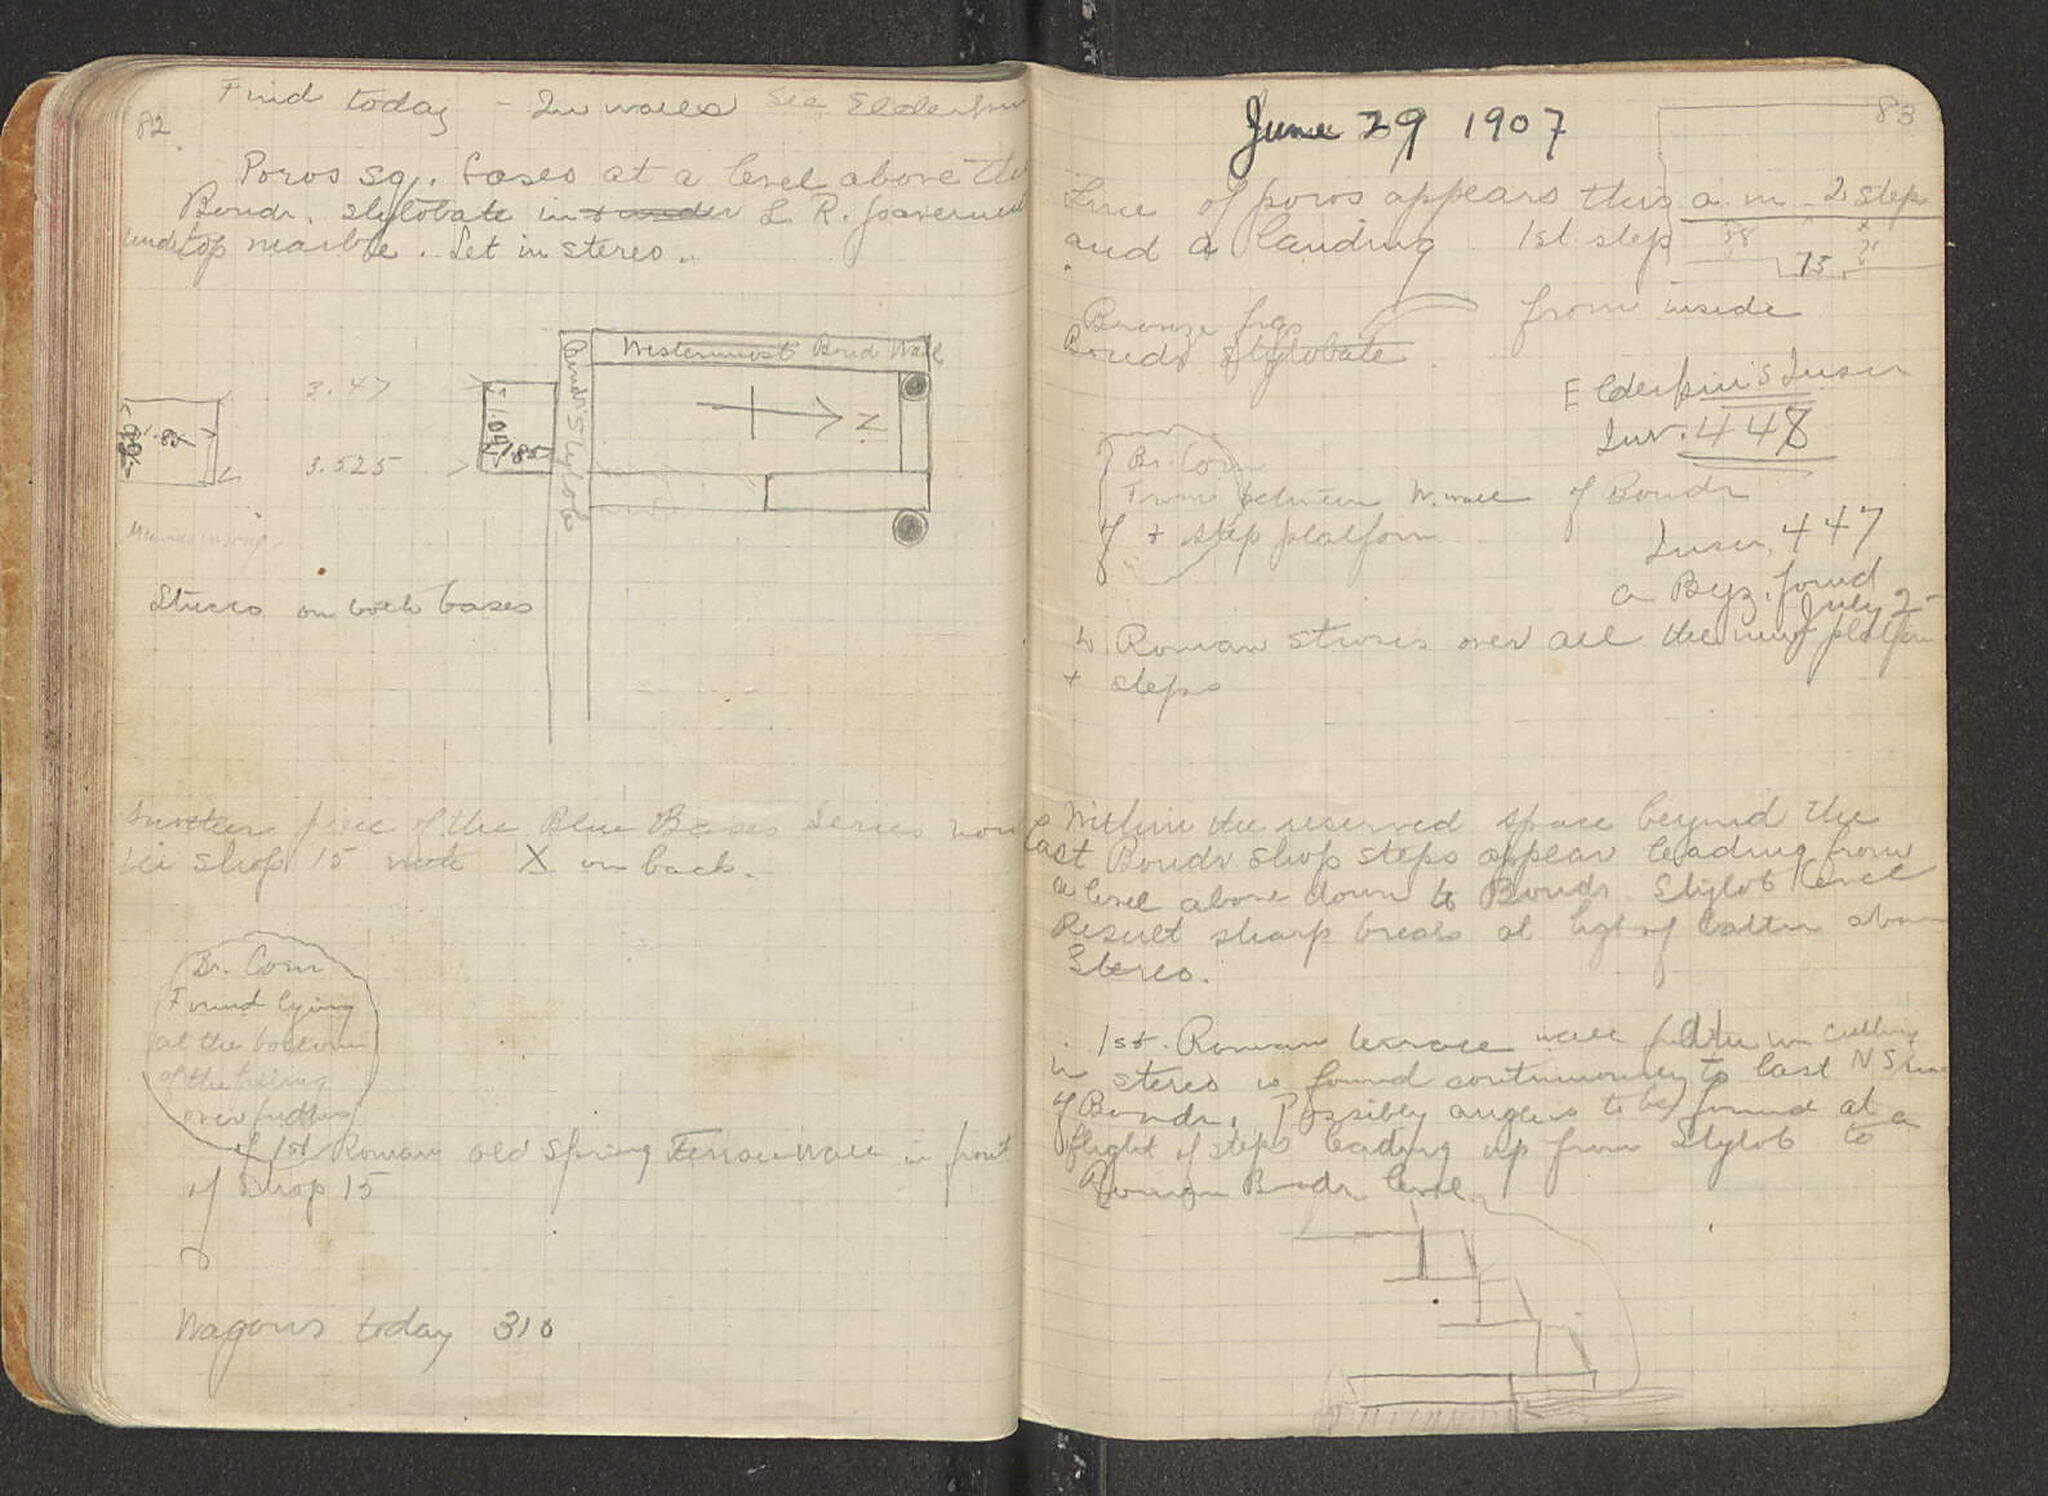 82
Find today - In walls See Elderkin
Poros sq. bases at a level above the
Boudr. stylobate in L. R. pavement
top marble. Set in stereo.
Westernmost Boudr Wall
Boudr's Stylob
N
3.47
3.525
1.04
.85
.82
Stucco on both bases
Another piece of the Blue Bases Series now
in shop 15 with X on back.
Br. Coin
Found lying
at the bottom
of the filling
over
of 1st Roman old Spring Terrace Wall in front
of Shop 15
Wagons today 310
83
June 29 1907
Line of poros appears this a.m. 2 steps
and a landing 1st step
38
75
Bronze frag from inside
Boudr stylobate
Elderkin's Inscr
Inv. 448
Br. Coin
From between W. wall of Boudr
& step platform
Inscr. 447
a Byz. found
July 2
Roman stucco over all the new platform
+ steps
Within the reserved space beyond the
last Boudr shop steps appear leading from
a level above down to Boudr. Stylob level
Result sharp break at hgt of latter above
Stereo.
1st. Roman terrace wall cutting
in stereo is found continuously to last N S
of Boudr. Possibly angle is to be found at a
flight of steps leading up from Stylob to
Roman Boudr level.